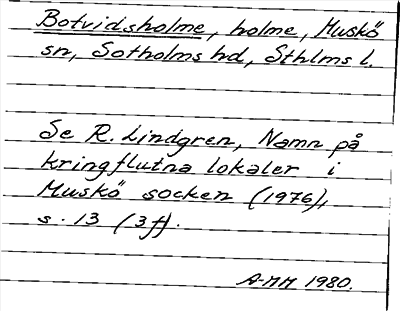 Botvidsholme, holme, Muskö
sn, Sotholms hd, Sthlms l.
Se R. Lindgren, Namn på
kringflutna lokaler i
Muskö socken (1976),
s. 13 (3f).
A-MM 1980.